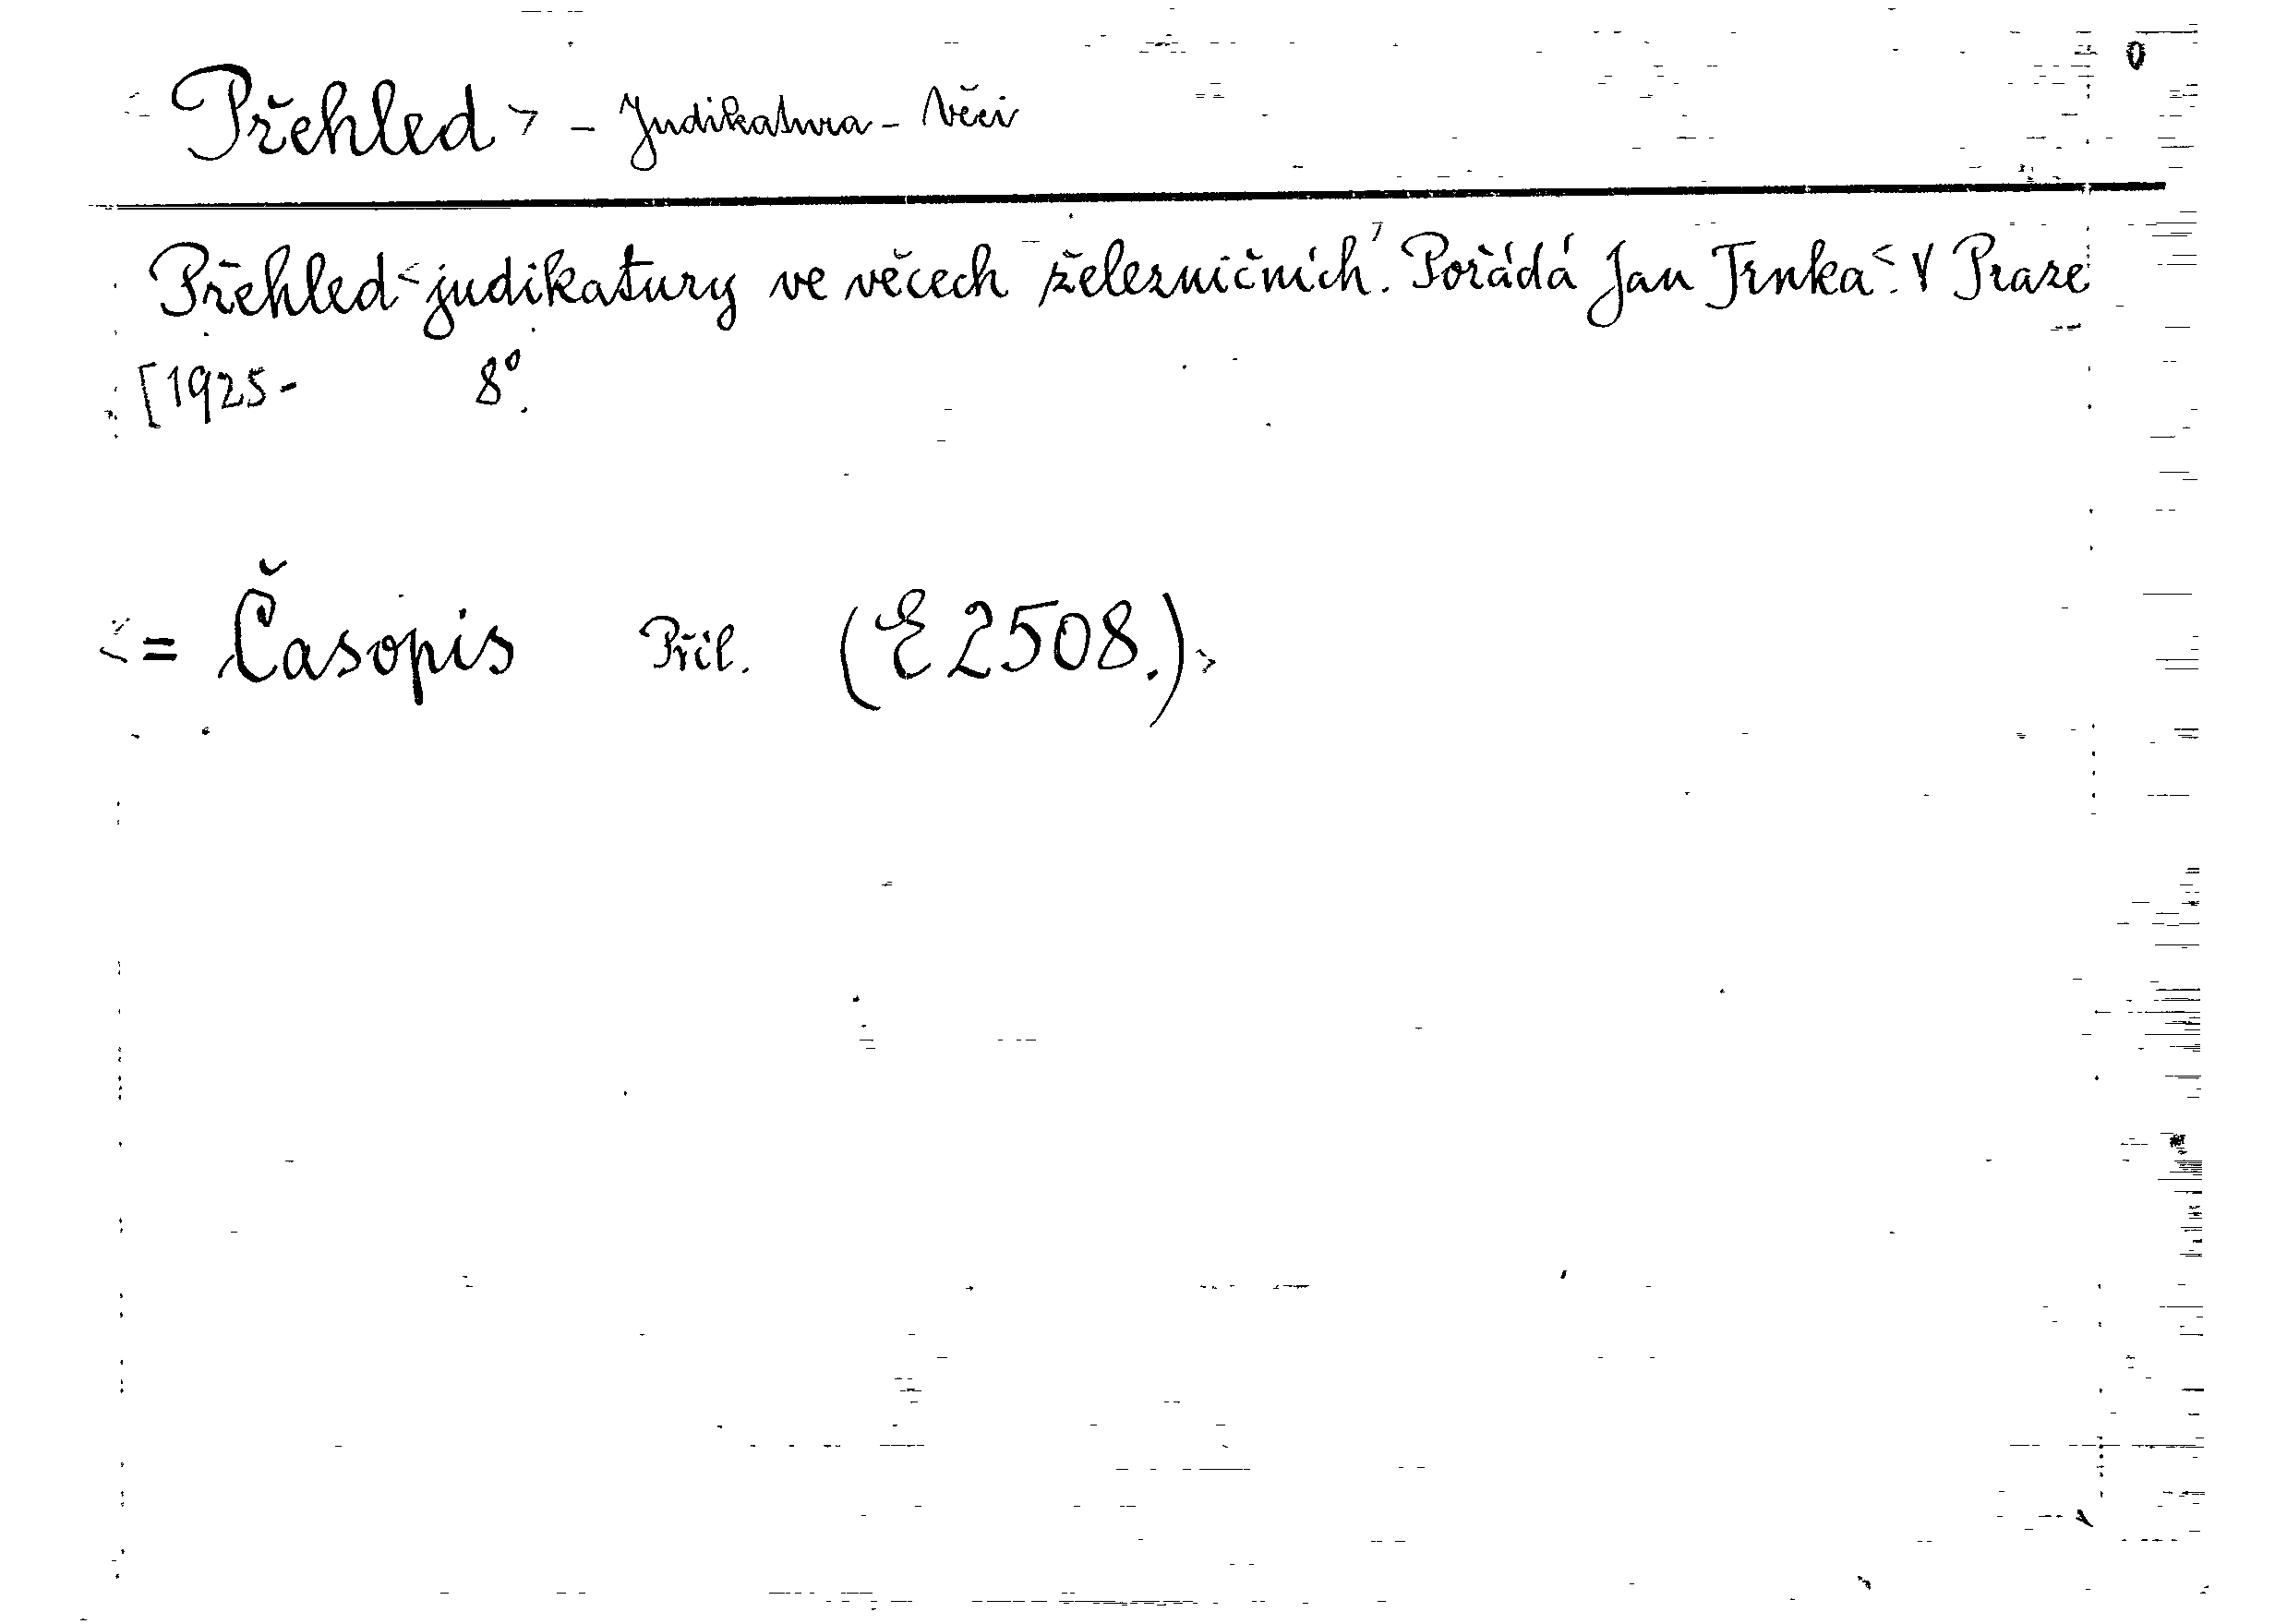 Přehled - Judikatura - Věci
Přehled judikatury ve věcech železničních. Pořádá Jan Trnka. V Praze
[1925- 8°.
= Časopis Příl. (E 2508.)